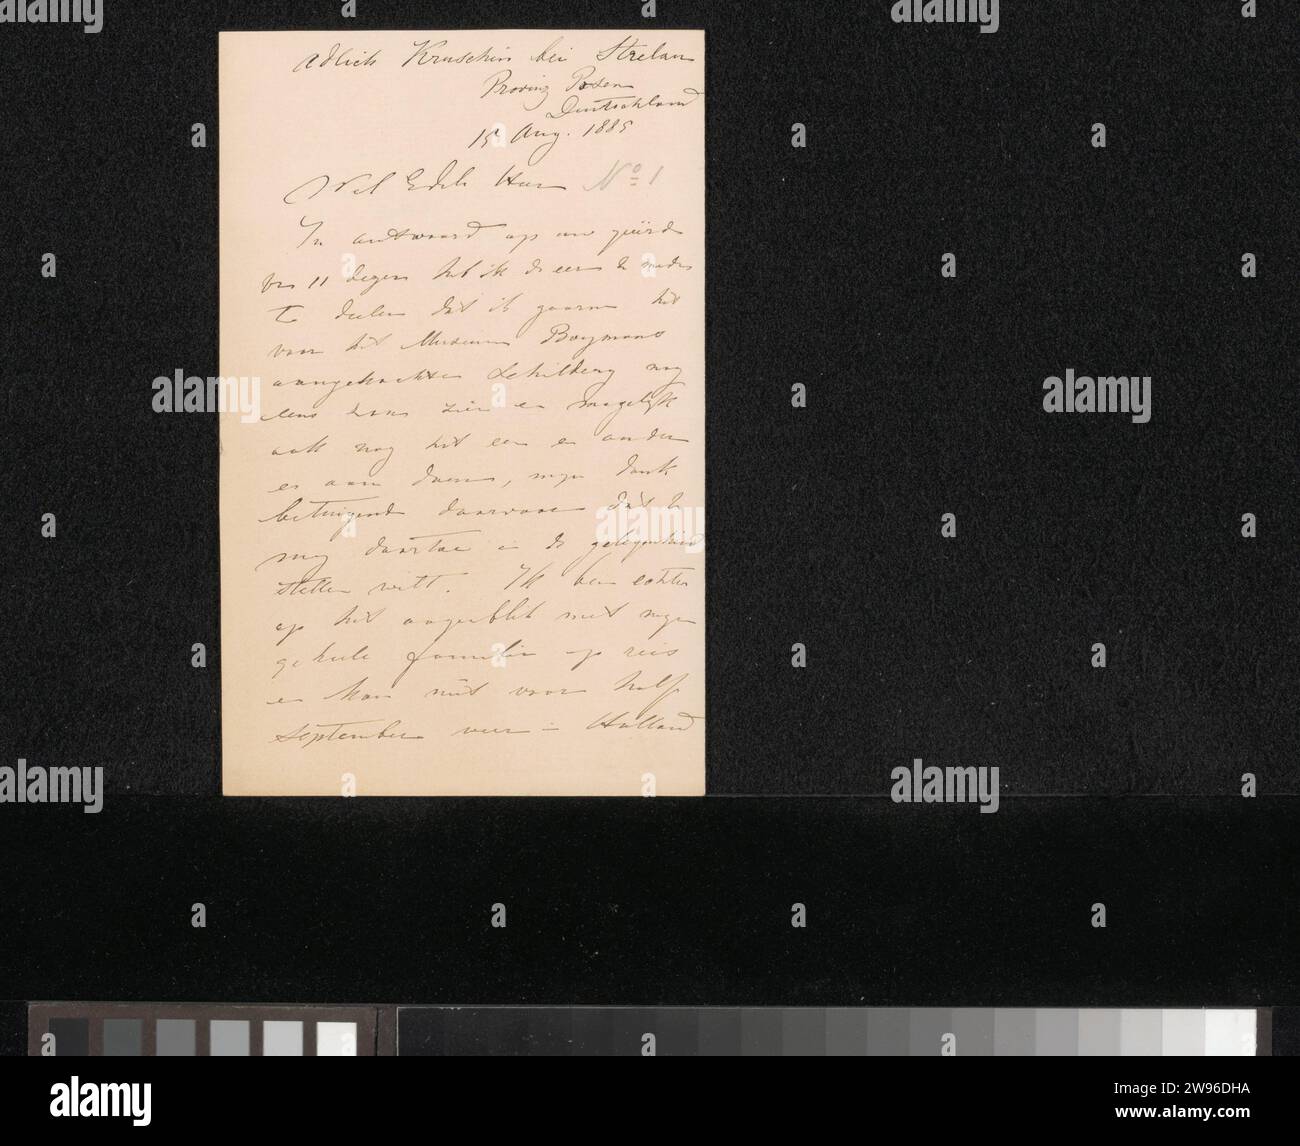 Adlich Kruschin bei Strelau
Provinz Posen
Deutschland
15 Aug. 1885
Wel Edele Heer No 1
In antwoord op uw geëerde
van 11 dezer heb ik de eer U mede
te deelen dat ik gaarne het
voor het Museum Boymans
aangekochte schilderij nog
eens kom zien en mogelijk
ook nog het een en ander
er aan doen, mijn dank
betuigend daarvoor dat U
mij daartoe in de gelegenheid
stellen wilt. Ik ben echter
op het oogenblik met mijn
geheele familie op reis
en kan niet voor half
September weer in Holland
alamy
Image ID: 2W96DHA
www.alamy.com